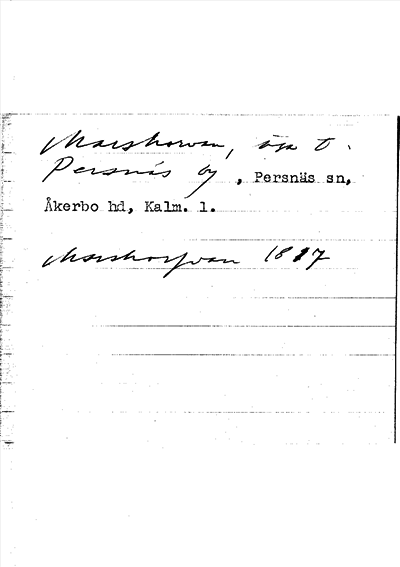 Marshorvan, äga t.
Persnäs by, Persnäs sn,
Åkerbo hd, Kalm. l.
Marshorfvan 1817